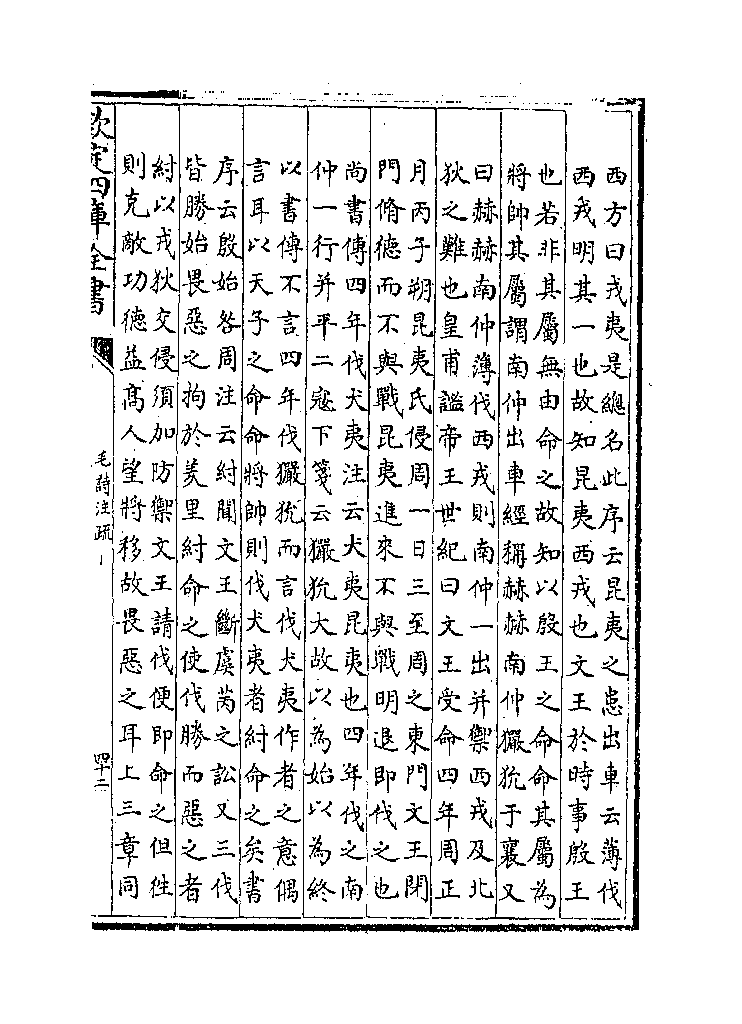 西方曰戎夷是總名此序云昆夷之患出車云薄伐
西戎明其一也故知昆夷西戎也文王於時事殷王
也若非其屬無由命之故知以殷王之命命其屬為
將帥其屬謂南仲出車經稱赫赫南仲玁狁于襄又
曰赫赫南仲薄伐西戎則南仲一出并禦西戎及北
狄之難也皇甫謐帝王世紀曰文王受命四年周正
月丙子朔昆夷氏侵周一日三至周之東門文王閉
門脩德而不與戰昆夷進來不與戰明退即伐之也
尚書傳四年伐犬夷注云犬夷昆夷也四年伐之南
仲一行并平二寇下箋云玁狁大故以為始以為終
以書傳不言四年伐玁狁而言伐犬夷作者之意偶
言耳以天子之命命將帥則伐犬夷者紂命之矣書
序云殷始咎周注云紂聞文王斷虞芮之訟又三伐
皆勝始畏惡之拘於羑里紂命之使伐勝而惡之者
紂以戎狄交侵須加防禦文王請伐便即命之但往
則克敵功德益高人望將移故畏惡之耳上三章同
欽定四庫全書
毛詩注疏
四十二